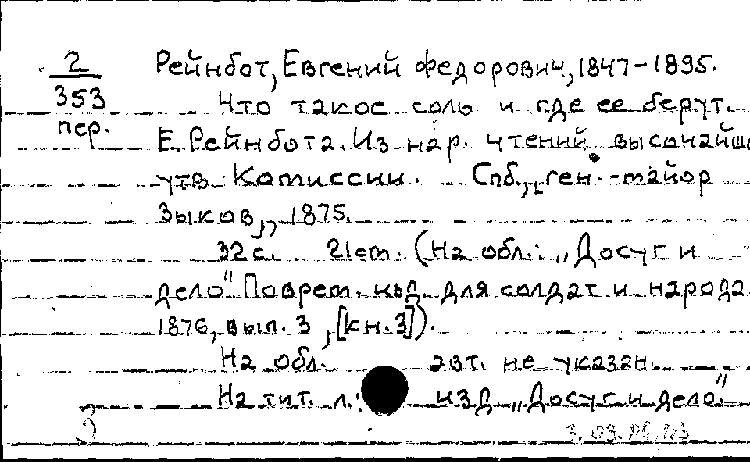 2
353
пер.
Рейнбот, Евгений Федорович, 1847-1895.
Что такое соль и где ее берут.
Е. Рейнбота. Из нар. чтений высочайше
утв. Комиссии. Спб., ген.-майор
Зыков, 1875.
32 с. 21 см. (На обл.: „Досуг и
дело" Поврем. изд. для солдат и народа
1876, вып. 3, [кн. 3]).
На обл. авт. не указан.
На тит. л.: изд. „Досуг и дело"